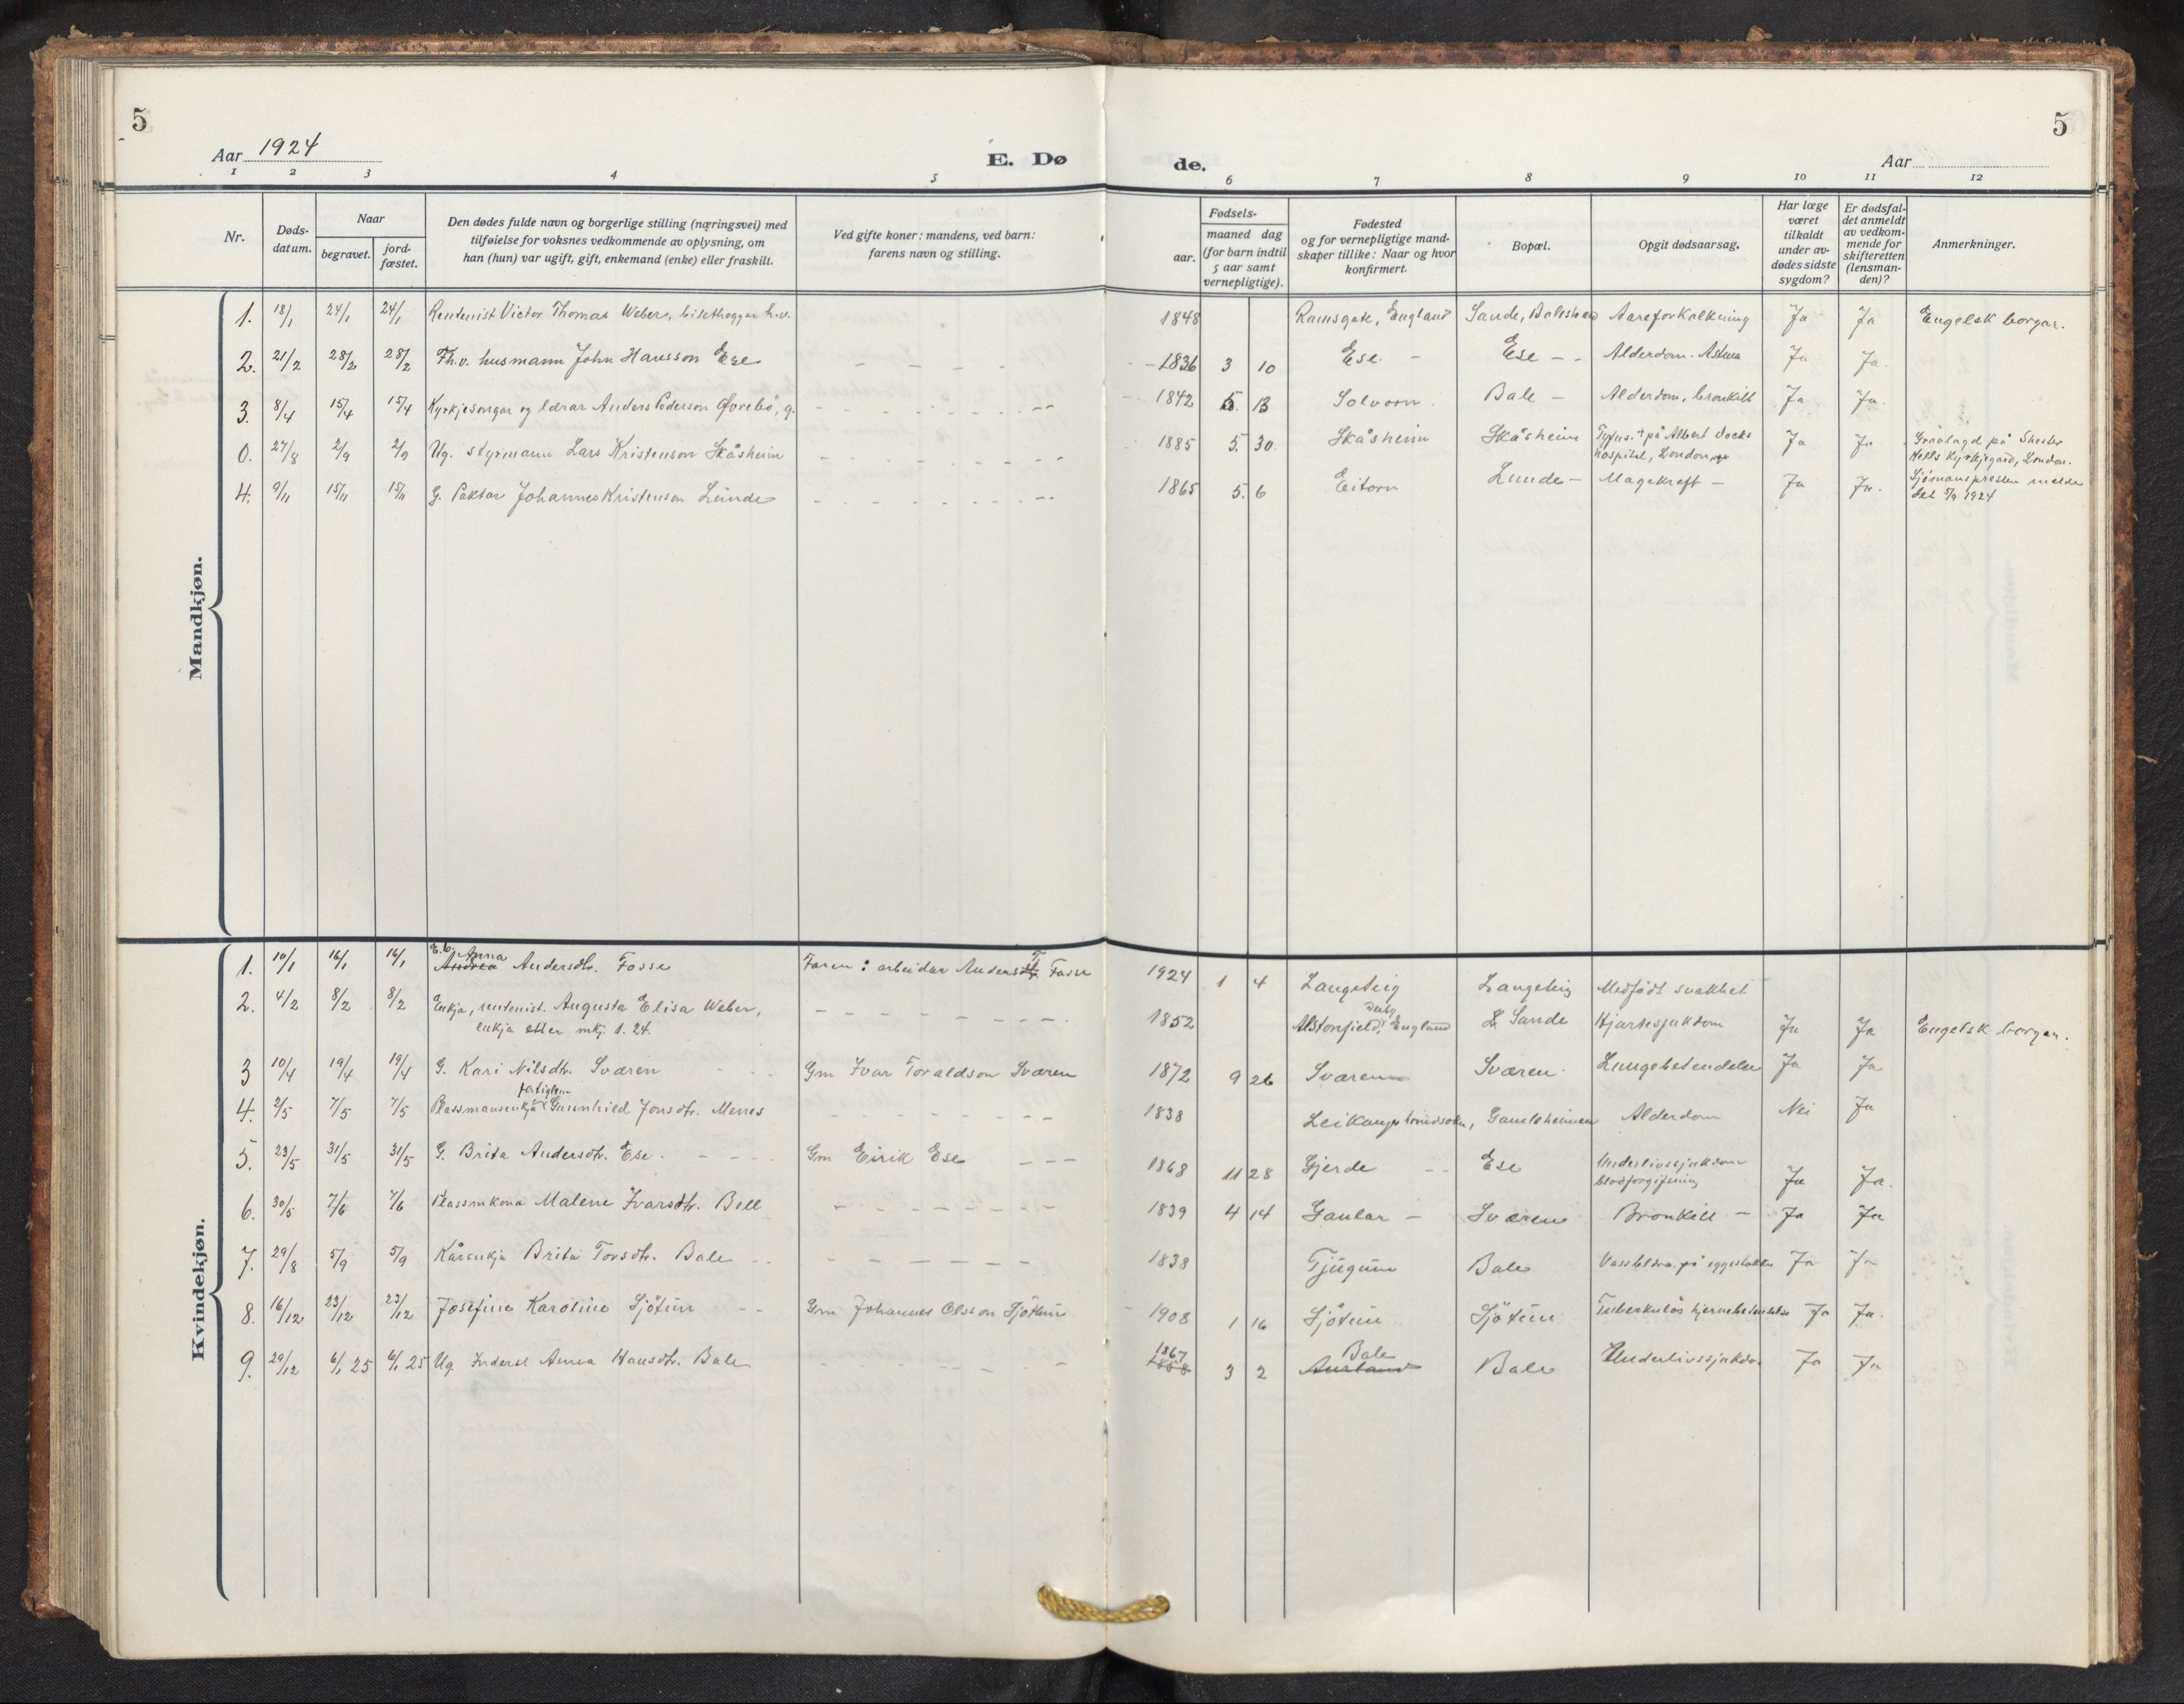 5
5
Aar 1924
E. Dø
de.
Aar
1 2 3 4 5 6 7 8 9 10 11 12
Nr.
Døds-
datum.
Naar
begravet.
jord-
fæstet.
Den dødes fulde navn og borgerlige stilling (næringsvei) med
tilføielse for voksnes vedkommende av oplysning, om
han (hun) var ugift, gift, enkemand (enke) eller fraskilt.
Ved gifte koner: mandens, ved barn:
farens navn og stilling.
Fødsels-
aar.
maaned dag
(for barn indtil
5 aar samt
vernepligtige).
Fødested
og for vernepligtige mand-
skaper tillike: Naar og hvor
konfirmert.
Bopæl.
Opgit dødsaarsag.
Har læge
været
tilkaldt
under av-
dødes sidste
sygdom?
Er dødsfal-
det anmeldt
av vedkom-
mende for
skifteretten
(lensman-
den)?
Anmerkninger.
Mandkjøn.
1. 18/1 24/1 24/1 Rentenist Victor Thomas Weber, bilethoggar h.v. 1848 Ramsgate, England Sande, Balestrand Aareforkalkning Ja Ja Engelsk borgar.
2. 21/2 28/2 28/2 Fh.v. husmann John Hansson Ese - - - - 1836 3 10 Ese - Ese - - Alderdom. Astma Ja Ja.
3. 8/4 15/4 15/4 Kyrkjesongar og lærar Anders Pederson Øvrebø, g. - - - - 1842 5. 13 Solvorn. Bale - Alderdom, bronkitt Ja Ja.
0. 27/8 2/9 2/9 Ug. styrmann Lars Kristenson Skåsheim - - - - 1885 5. 30. Skåsheim Skåsheim Tyfus. + på Albert Docks Ja Ja Gravlagd på
hospital, London Kyrkjegard, London.
4. 9/11 15/11 15/11 G. Paktar Johannes Kristenson Lunde - - - - 1865 5. 6 Eitorn Lunde - Magekreft - Ja Ja. Sjømannspresten melde
det 5/9 1924
Kvindekjøn.
E. b. Anna
1. 10/1 16/1 16/1 Andrea Andersdtr. Fosse Faren: arbeidar Anders T. Fosse 1924 1 4 Langeteig Langeteig Medfødt svakhet
2. 4/2 8/2 8/2 Enkja, rentenist. Augusta Elisa Weber, - - - - 1852 Alstonfield, Derby England Sande Hjartesjukdom Ja Ja Engelsk borgar.
enkja etter mkj. 1. 24.
3 10/4 19/4 19/4 G. Kari Nilsdtr. Sværen Gm Ivar Toraldson Sværen 1872 9 26 Sværen Sværen Lungebetendelse Ja Ja
fatiglem
4. 2/5 7/5 7/5 Plassmannsenkja Gunnhild Jonsdtr. Menes - - - - 1838 Leikanger hovudsokn, Gamleheimen Alderdom Nei Ja
5. 23/5 31/5 31/5 G. Brita Andersdtr. Ese. - - - Gm Eirik Ese - - - 1868 11 28 Gjerde - - Ese Underlivssjukdom Ja Ja.
blodforgiftning
6. 30/5 7/6 7/6 Plassmkona Malene Ivarsdtr. Bell - - - - 1839 4 14 Gaular - Sværen Bronkitt - Ja Ja
7. 29/8 5/9 5/9 Kårenkja Brita Torsdtr. Bale - - - - - - 1838 Tjugum Bale på eggestokken Ja Ja
8. 16/12 23/12 23/12 Josefine Karoline Sjøtun - - Gm Johannes Olsson Sjøtun 1908 1 16 Sjøtun Sjøtun Tuberkuløs hjernebetendelse Ja Ja.
1867 Bale
9. 29/12 6/1 25 6/1 25 Ug. Inderst Anna Hansdtr. Bale - - - - 1868 3 2 Aurland Bale Underlivssjukdom Ja Ja